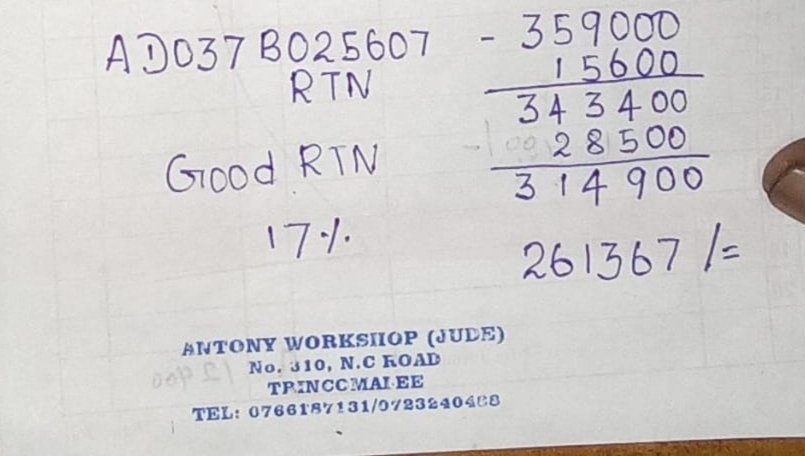 AD037B025607 - 359000
RTN 15600
343400
Good RTN 28500
314900
17% 261367/=
ANTONY WORKSHOP (JUDE)
No. 310, N.C ROAD
TRINCCMALEE
TEL: 0766187131/0723240468